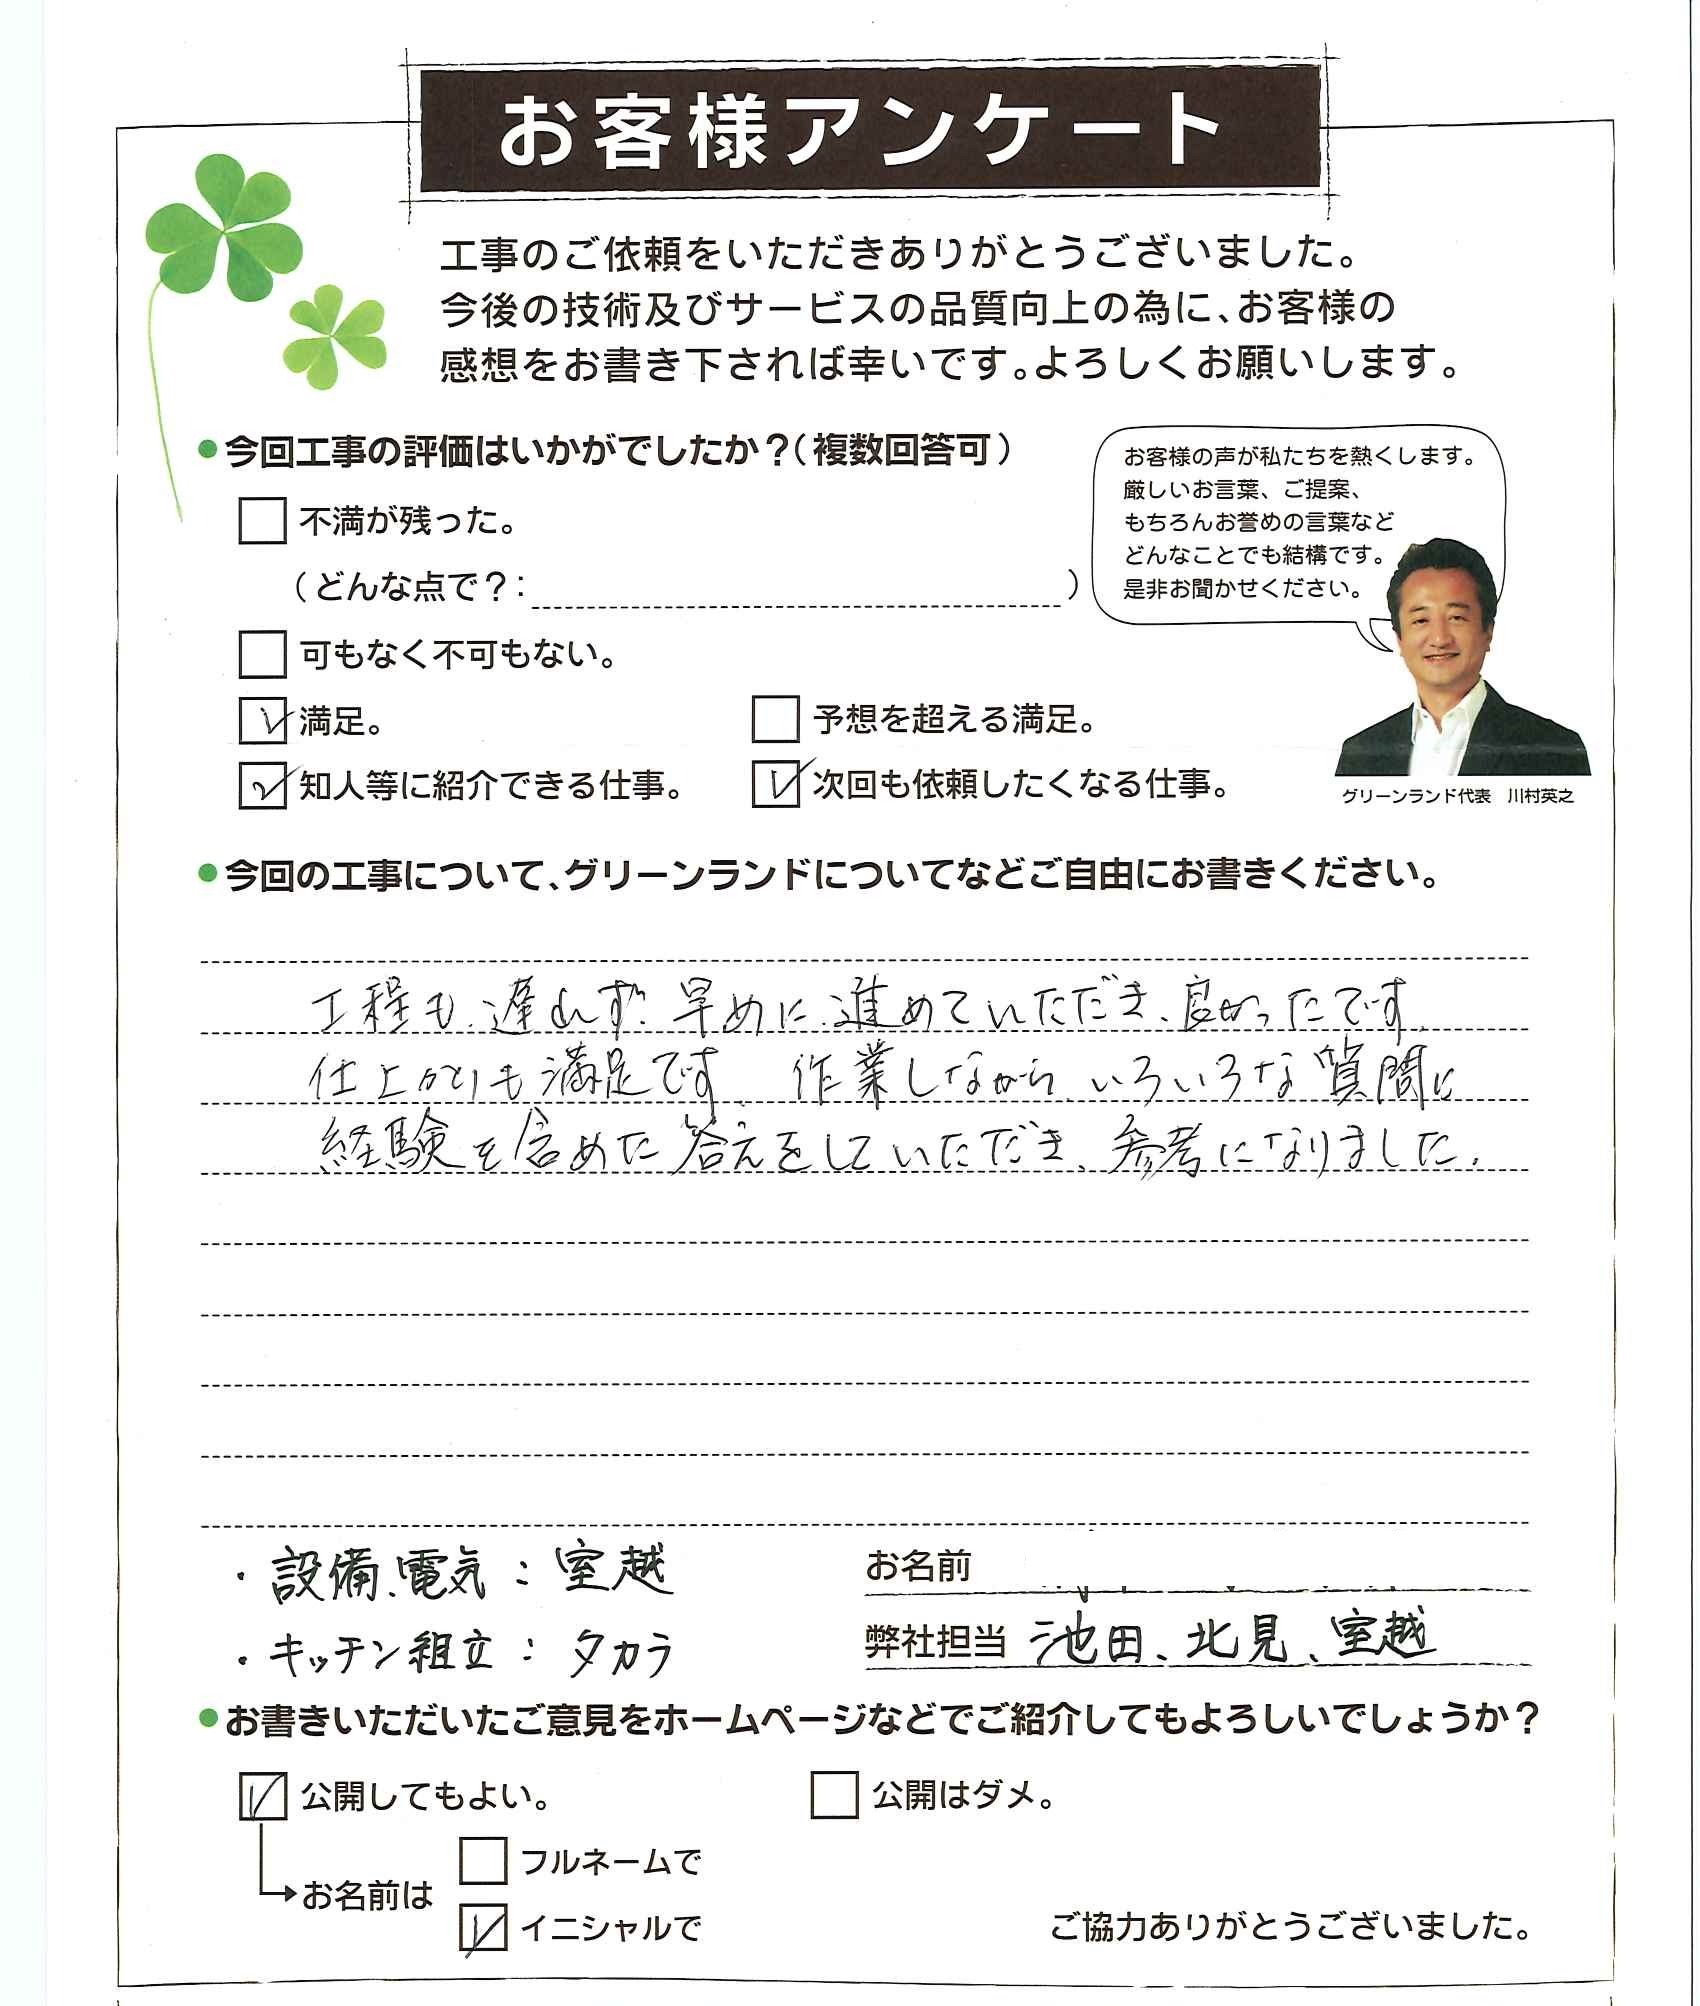 お客様アンケート
工事のご依頼をいただきありがとうございました。
今後の技術及びサービスの品質向上の為に、お客様の
感想をお書き下されば幸いです。よろしくお願いします。
●今回工事の評価はいかがでしたか？（複数回答可）
お客様の声が私たちを熱くします。
厳しいお言葉、ご提案、
もちろんお誉めの言葉など
どんなことでも結構です。
是非お聞かせください。
不満が残った。
（どんな点で？： ）
可もなく不可もない。
満足。 予想を超える満足。
知人等に紹介できる仕事。 次回も依頼したくなる仕事。
グリーンランド代表 川村英之
●今回の工事について、グリーンランドについてなどご自由にお書きください。
工程も遅れず、早めに進めていただき、良かったです。
仕上がりも満足です。作業しながら、いろいろな質問に
経験を含めた答えをしていただき、参考になりました。
・設備、電気：室越
・キッチン組立：タカラ
お名前
弊社担当 池田、北見、室越
●お書きいただいたご意見をホームページなどでご紹介してもよろしいでしょうか？
公開してもよい。 公開はダメ。
お名前は
フルネームで
イニシャルで
ご協力ありがとうございました。